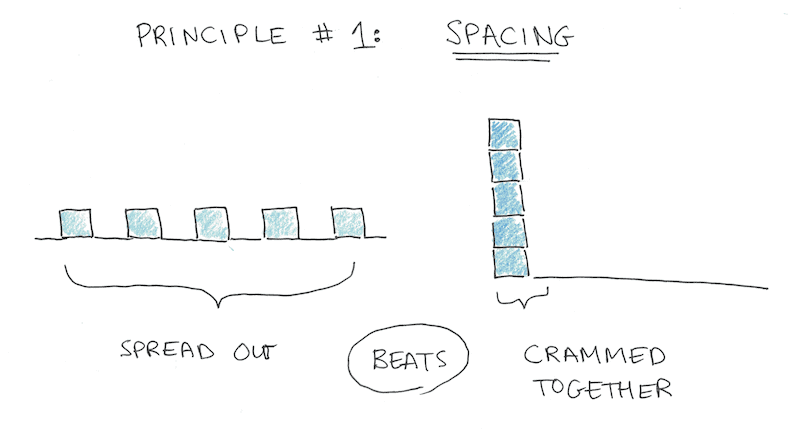 PRINCIPLE # 1: SPACING
SPREAD OUT
BEATS
CRAMMED
TOGETHER